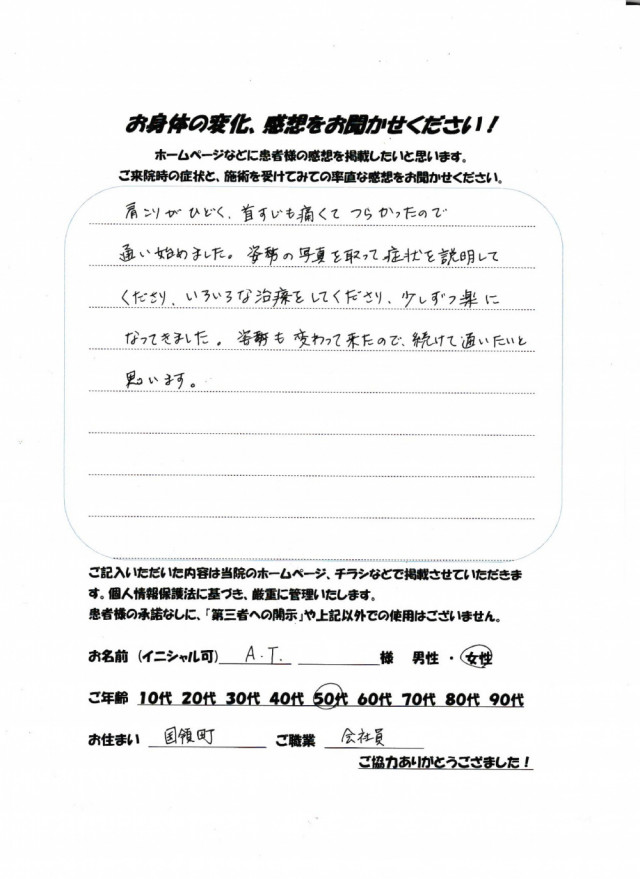 お身体の変化、感想をお聞かせください！
ホームページなどに患者様の感想を掲載したいと思います。
ご来院時の症状と、施術を受けてみての率直な感想をお聞かせください。
肩こりがひどく、首すじも痛くて つらかったので
通い始めました。姿勢の写真を取って症状を説明して
くださり、いろいろな治療をしてくださり、少しずつ楽に
なってきました。姿勢も変わって来たので、続けて通いたいと
思います。
ご記入いただいた内容は当院のホームページ、チラシなどで掲載させていただきま
す。個人情報保護法に基づき、厳重に管理いたします。
患者様の承諾なしに、「第三者への開示」や上記以外での使用はございません。
お名前（イニシャル可） A.T. 様 男性 ・ 女性
ご年齢 10代 20代 30代 40代 50代 60代 70代 80代 90代
お住まい 国領町 ご職業 会社員
ご協力ありがとうござました！